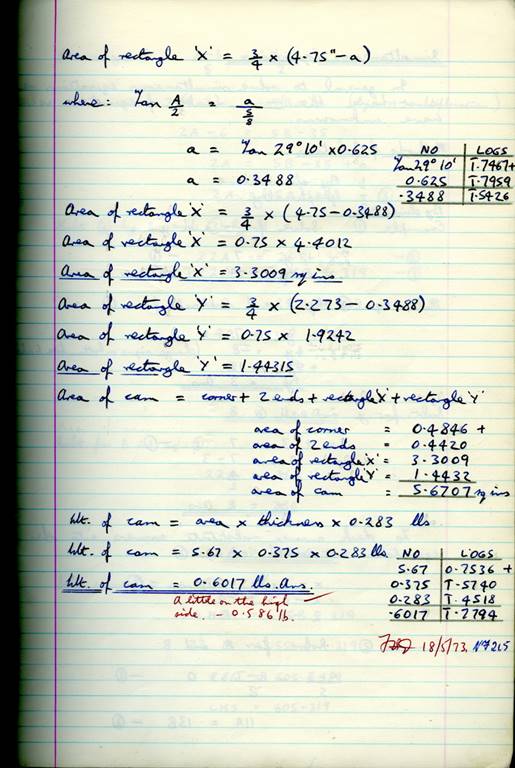 Area of rectangle 'X' = 3/4 × (4.75" - a)
where: Tan A/2 = a / 5/8
a = Tan 29° 10' × 0.625
a = 0.3488
NO LOGS
Tan 29° 10' 1̅.7467 +
0.625 1̅.7959
.3488 1̅.5426
Area of rectangle 'X' = 3/4 × (4.75 - 0.3488)
Area of rectangle 'X' = 0.75 × 4.4012
Area of rectangle 'X' = 3.3009 sq ins
Area of rectangle 'Y' = 3/4 × (2.273 - 0.3488)
Area of rectangle 'Y' = 0.75 × 1.9242
Area of rectangle 'Y' = 1.44315
Area of cam = corner + 2 ends + rectangle 'X' + rectangle 'Y'
area of corner = 0.4846 +
area of 2 ends = 0.4420
area of rectangle 'X' = 3.3009
area of rectangle 'Y' = 1.4432
area of cam = 5.6707 sq ins
Wt. of cam = area × thickness × 0.283 lbs
Wt. of cam = 5.67 × 0.375 × 0.283 lbs.
Wt. of cam = 0.6017 lbs. Ans.
NO LOGS
5.67 0.7536 +
0.375 1̅.5740
0.283 1̅.4518
.6017 1̅.7794
A little on the high
side. - 0.586 lb.
18/5/73. Nº7215